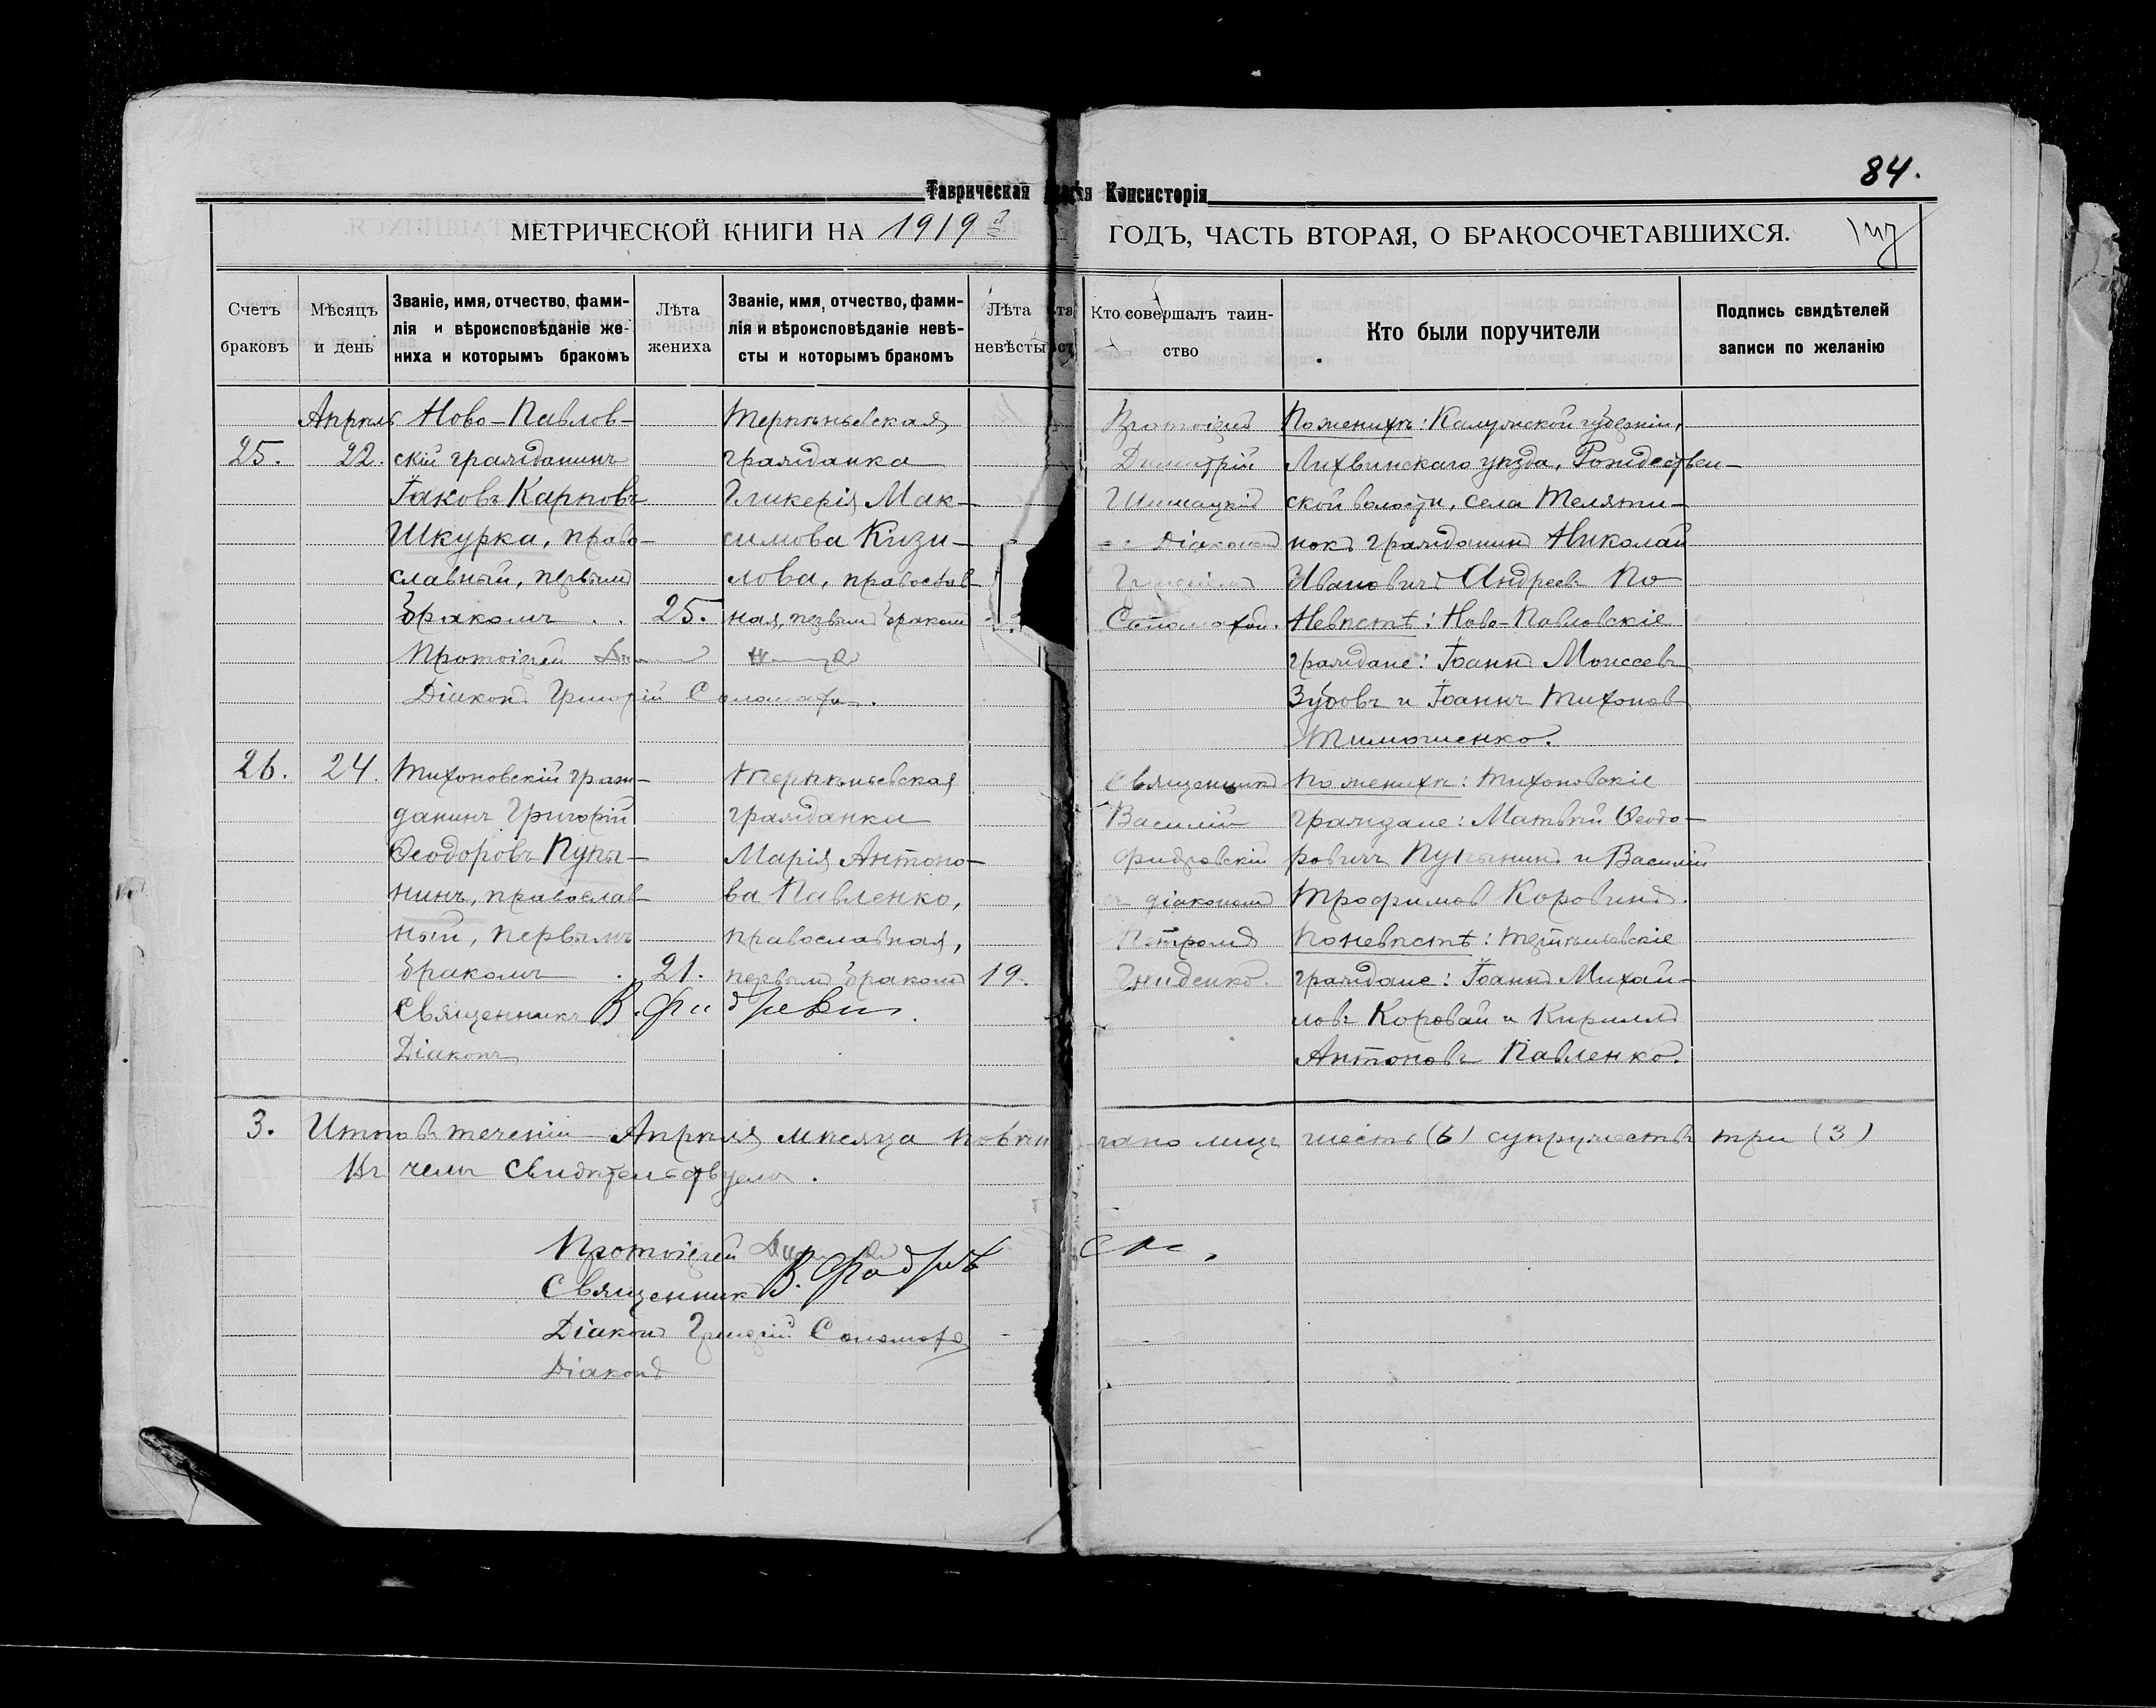 84.
Таврическая Консисторія
МЕТРИЧЕСКОЙ КНИГИ НА 1919 й ГОДЪ, ЧАСТЬ ВТОРАЯ, О БРАКОСОЧЕТАВШИХСЯ.
Счетъ браковъ
Мѣсяцъ и день
Званіе, имя, отчество, фами-
лія и вѣроисповѣданіе же-
ниха и которымъ бракомъ
Лѣта жениха
Званіе, имя, отчество, фами-
лія и вѣроисповѣданіе невѣ-
сты и которымъ бракомъ
Лѣта невѣсты
Кто совершалъ таин-
ство
Кто были поручители
Подпись свидѣтелей
записи по желанію
25.
Апрѣль
22.
Ново-Павлов-
скій гражданинъ
Іаковъ Карповъ
Шкурка, право-
славный, первымъ
бракомъ . . 25.
Терпѣньевская
гражданка
Гликерія Мак-
симова Кизи-
лова, православ-
ная, первымъ бракомъ
Протоіерей
Діаконъ Григорій Соломаха.
Протоіерей
Димитрій
Шишацкій
съ Діакономъ
Григоріемъ
Соломахой.
По женихѣ: Калужской губерніи,
Лихвинскаго уѣзда, Рождествен-
ской волости, села Теляти-
нокъ гражданинъ Николай
Ивановичъ Андреевъ По
Невѣстѣ: Ново-Павловскіе
граждане: Іоаннъ Моисеевъ
Зубовъ и Іоаннъ Тихоновъ
Тимошенко.
26.
24.
Тихоновскій граж-
данинъ Григорій
Ѳеодоровъ Пупы-
нинъ, православ-
ный, первымъ
бракомъ . 21.
Терпѣньевская
гражданка
Марія Антоно-
ва Павленко,
православная,
первымъ бракомъ 19.
Священникъ В.
Діаконъ
Священникъ
Василій
съ діакономъ
Петромъ
Гниденко.
По женихѣ: Тихоновскіе
граждане: Матѳій Ѳеодо-
ровичъ Пупынинъ и Василій
Трофимовъ Коровинъ.
По невѣстѣ: Терпѣньевскіе
граждане: Іоаннъ Михай-
ловъ Коровай и Кириллъ
Антоновъ Павленко.
3. Итого въ теченіи Апрѣля мѣсяца повѣнчано лицъ шесть (6) супружествъ три (3)
Въ чемъ свидѣтельствуемъ.
Протоіерей
Священникъ В.
Діаконъ Григорій Соломаха
Діаконъ